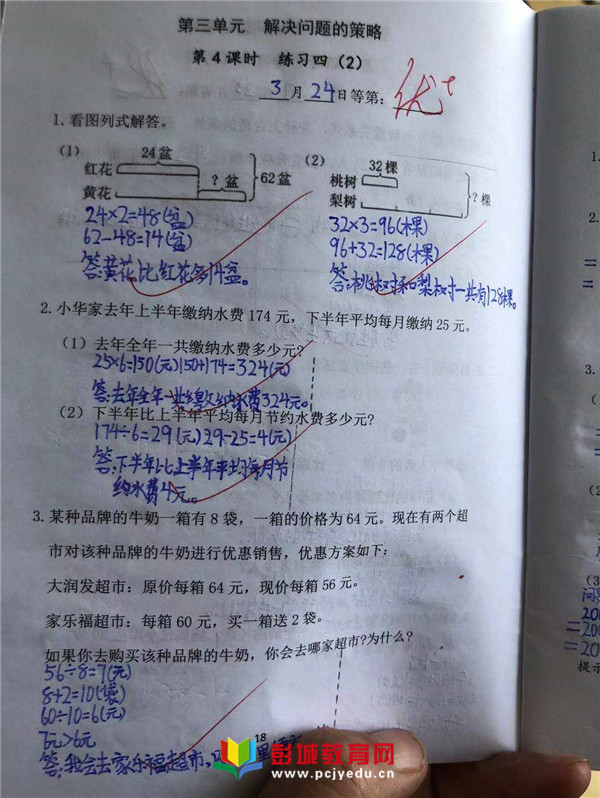 第三单元 解决问题的策略
第4课时 练习四（2）
3月24日等第：优+
1.看图列式解答。
（1） 24盆 （2） 32棵
红花 ？盆 62盆 桃树 ？棵
黄花 梨树
24×2=48(盆) 32×3=96(棵)
62-48=14(盆) 96+32=128(棵)
答:黄花比红花多14盆。 答:桃树和梨树一共有128棵。
2.小华家去年上半年缴纳水费174元，下半年平均每月缴纳25元。
（1）去年全年一共缴纳水费多少元?
25×6=150(元) 150+174=324(元)
答:去年全年一共缴纳水费324元。
（2）下半年比上半年平均每月节约水费多少元?
174÷6=29(元) 29-25=4(元)
答:下半年比上半年平均每月节
约水费4元。
3.某种品牌的牛奶一箱有8袋，一箱的价格为64元。现在有两个超
市对该种品牌的牛奶进行优惠销售，优惠方案如下：
大润发超市：原价每箱64元，现价每箱56元。
家乐福超市：每箱60元，买一箱送2袋。
如果你去购买该种品牌的牛奶，你会去哪家超市?为什么?
56÷8=7(元)
8+2=10(袋)
60÷10=6(元)
7元>6元
答:我会去家乐福超市,
18
彭城教育网
www.pcjyedu.cn
1.
2.
3.
（1）
（2）
（3）
问
20
=20
=20
提示